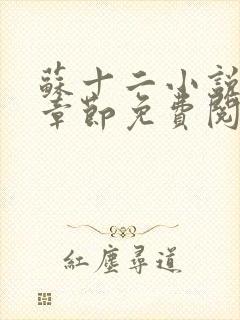 蘇十二小說
章節免費閱
紅塵尋道